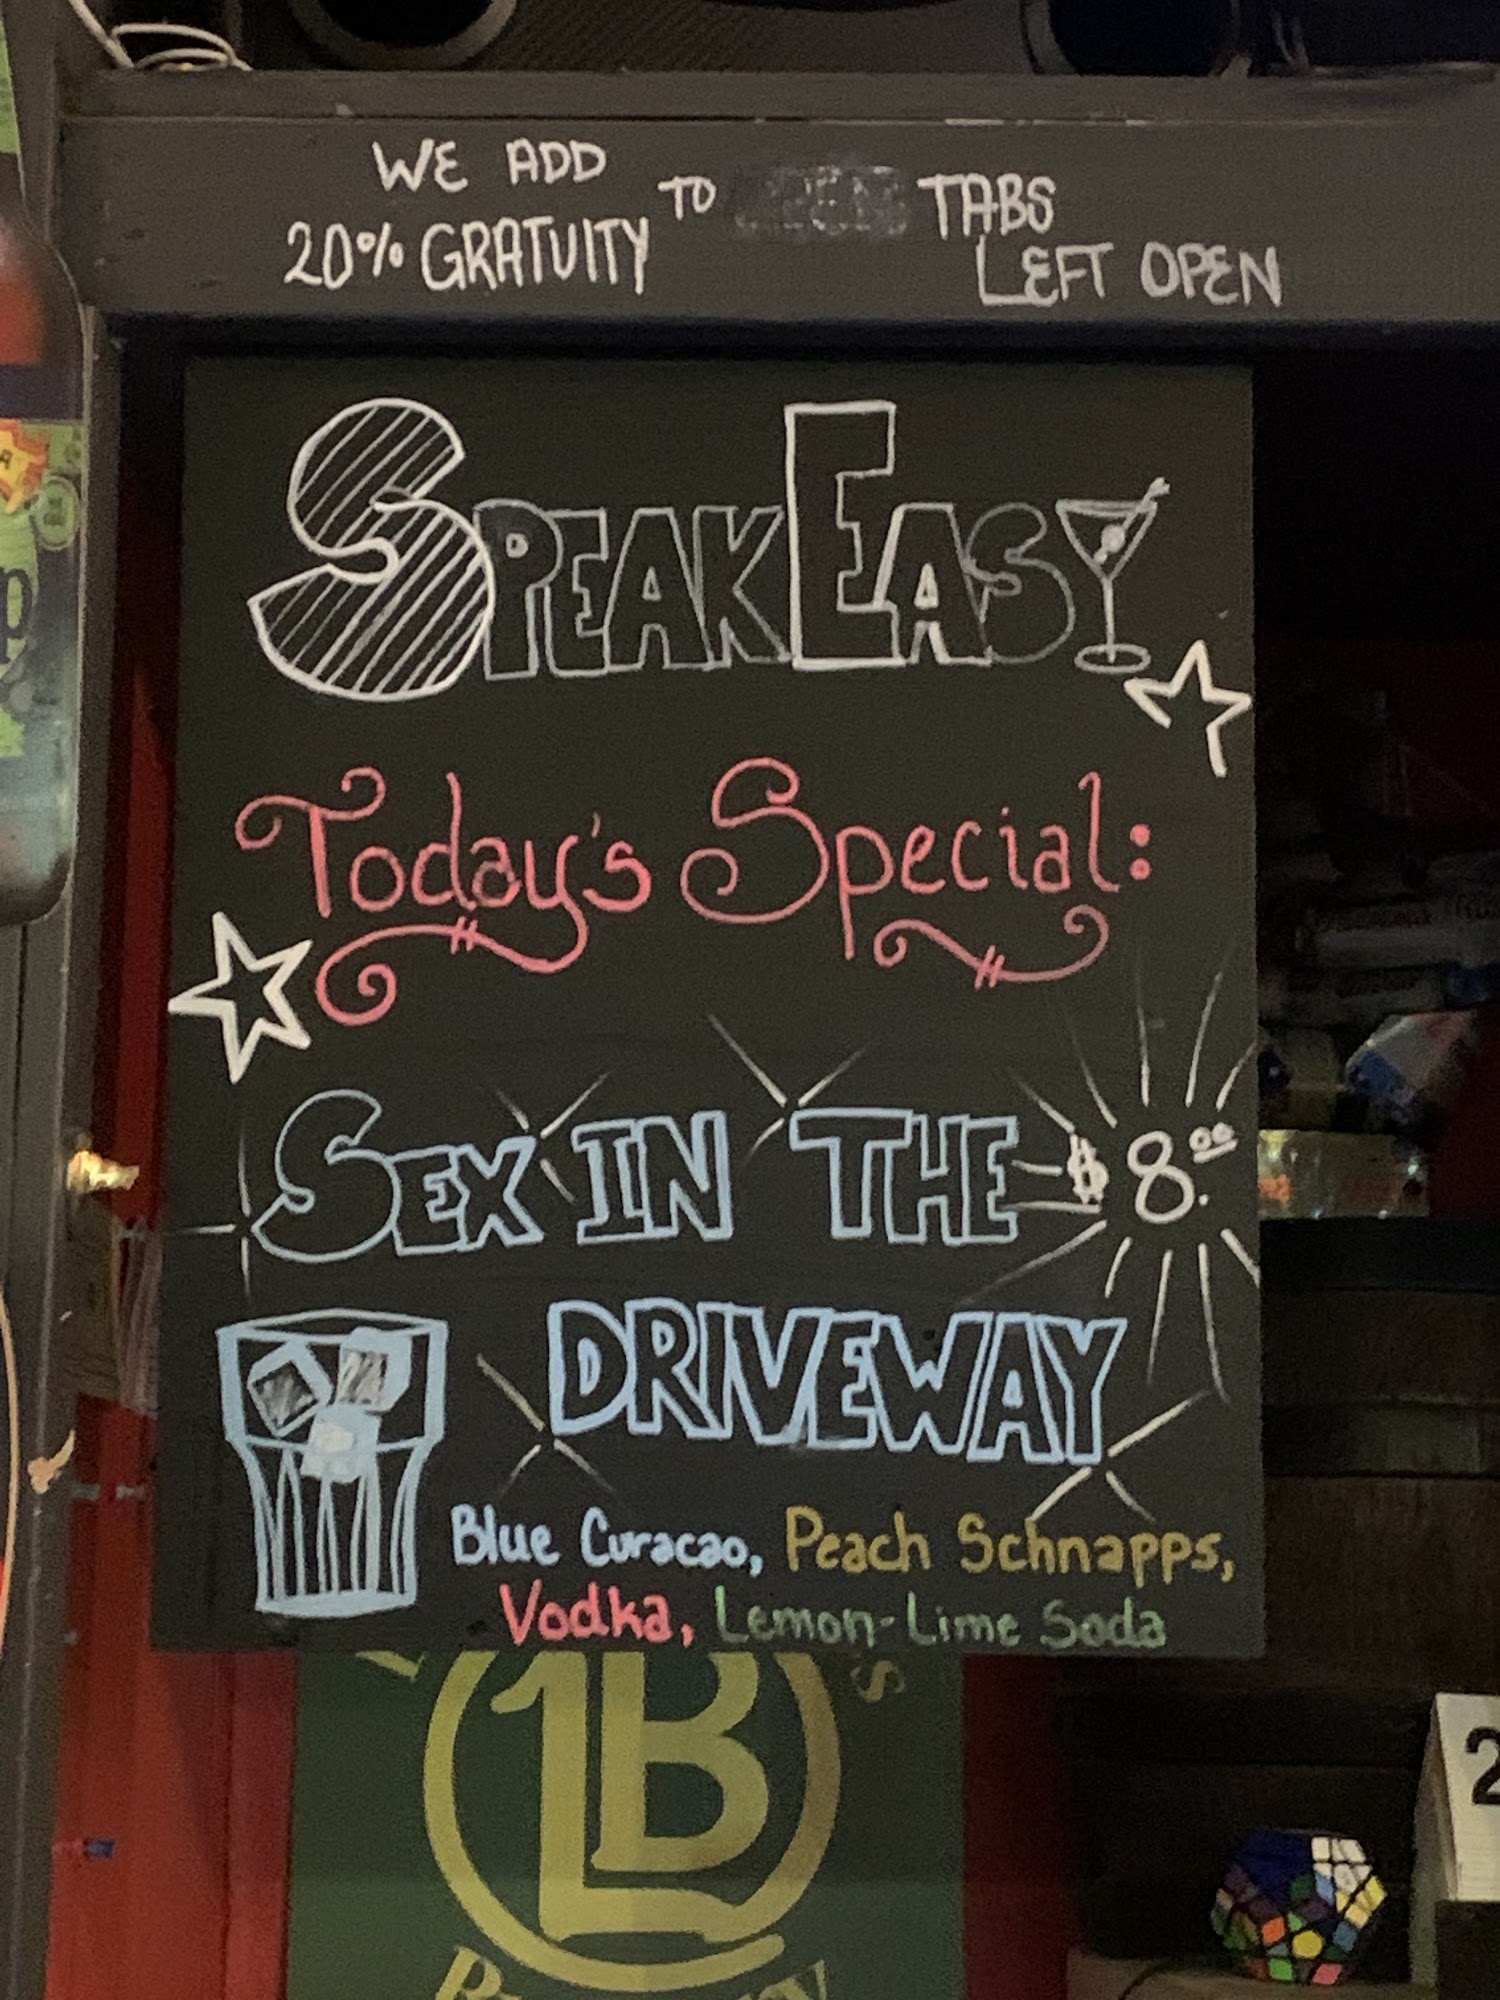 WE ADD
20% GRATUITY TO TABS
LEFT OPEN
SPEAKEASY
Today's Special:
SEX IN THE $8.00
DRIVEWAY
Blue Curacao, Peach Schnapps,
Vodka, Lemon-Lime Soda
LB
2